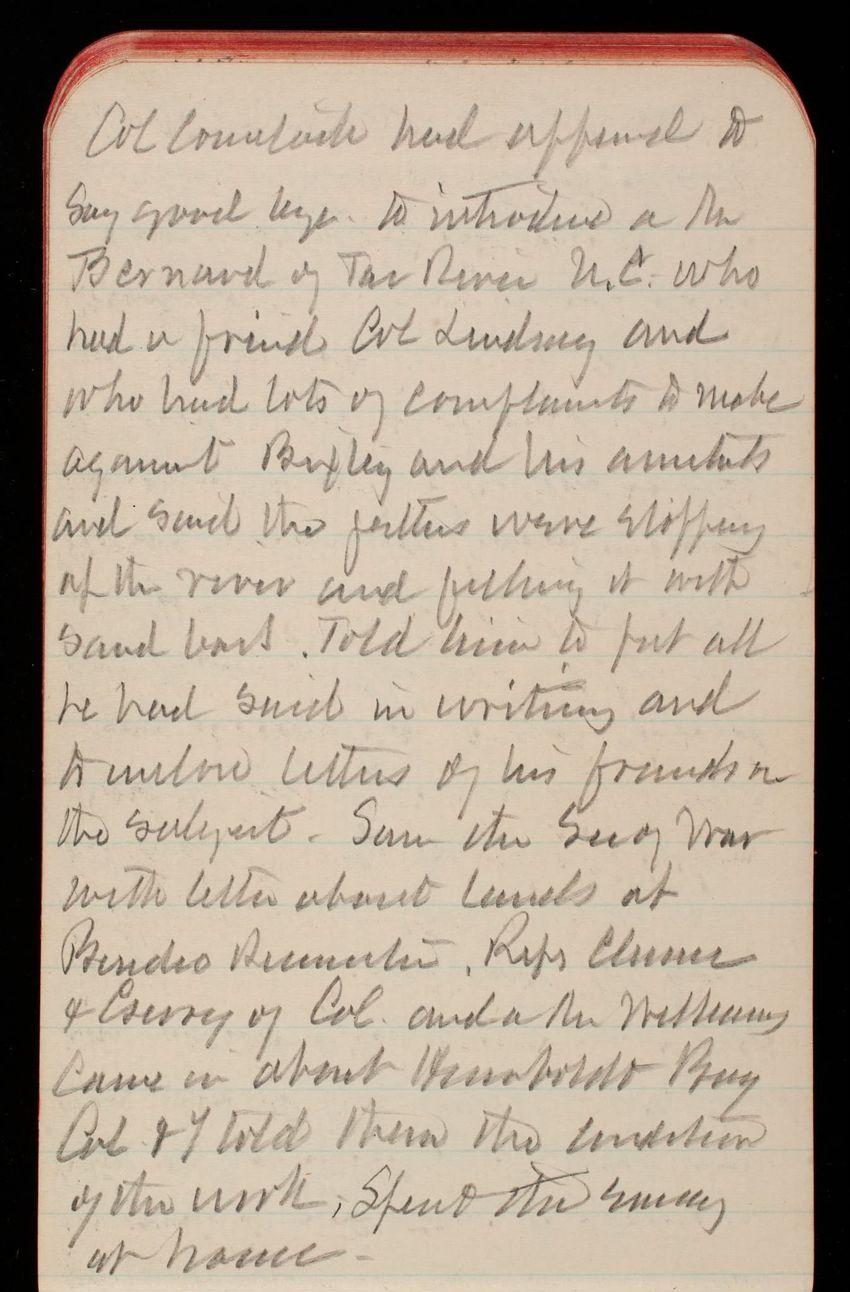 Col Comstock had appeared to
say good bye. to introduce a Mr
Bernard of Tar River N.C. who
had a friend Col Lindsay and
who had lots of complaints to make
against Bixby and his assistants
and said the jetties were stopping
up the river and filling it with
sand bars. Told him to put all
he had said in writing and
to enclose letters of his friends on
the subject - Saw the Sec of War
with letter about lands at
Benicia . Reps Clunie
& of Cal. and a Mr Williams
came in about Humboldt Bay
Cal & I told them the condition
of the work, Spent the evening
at home -